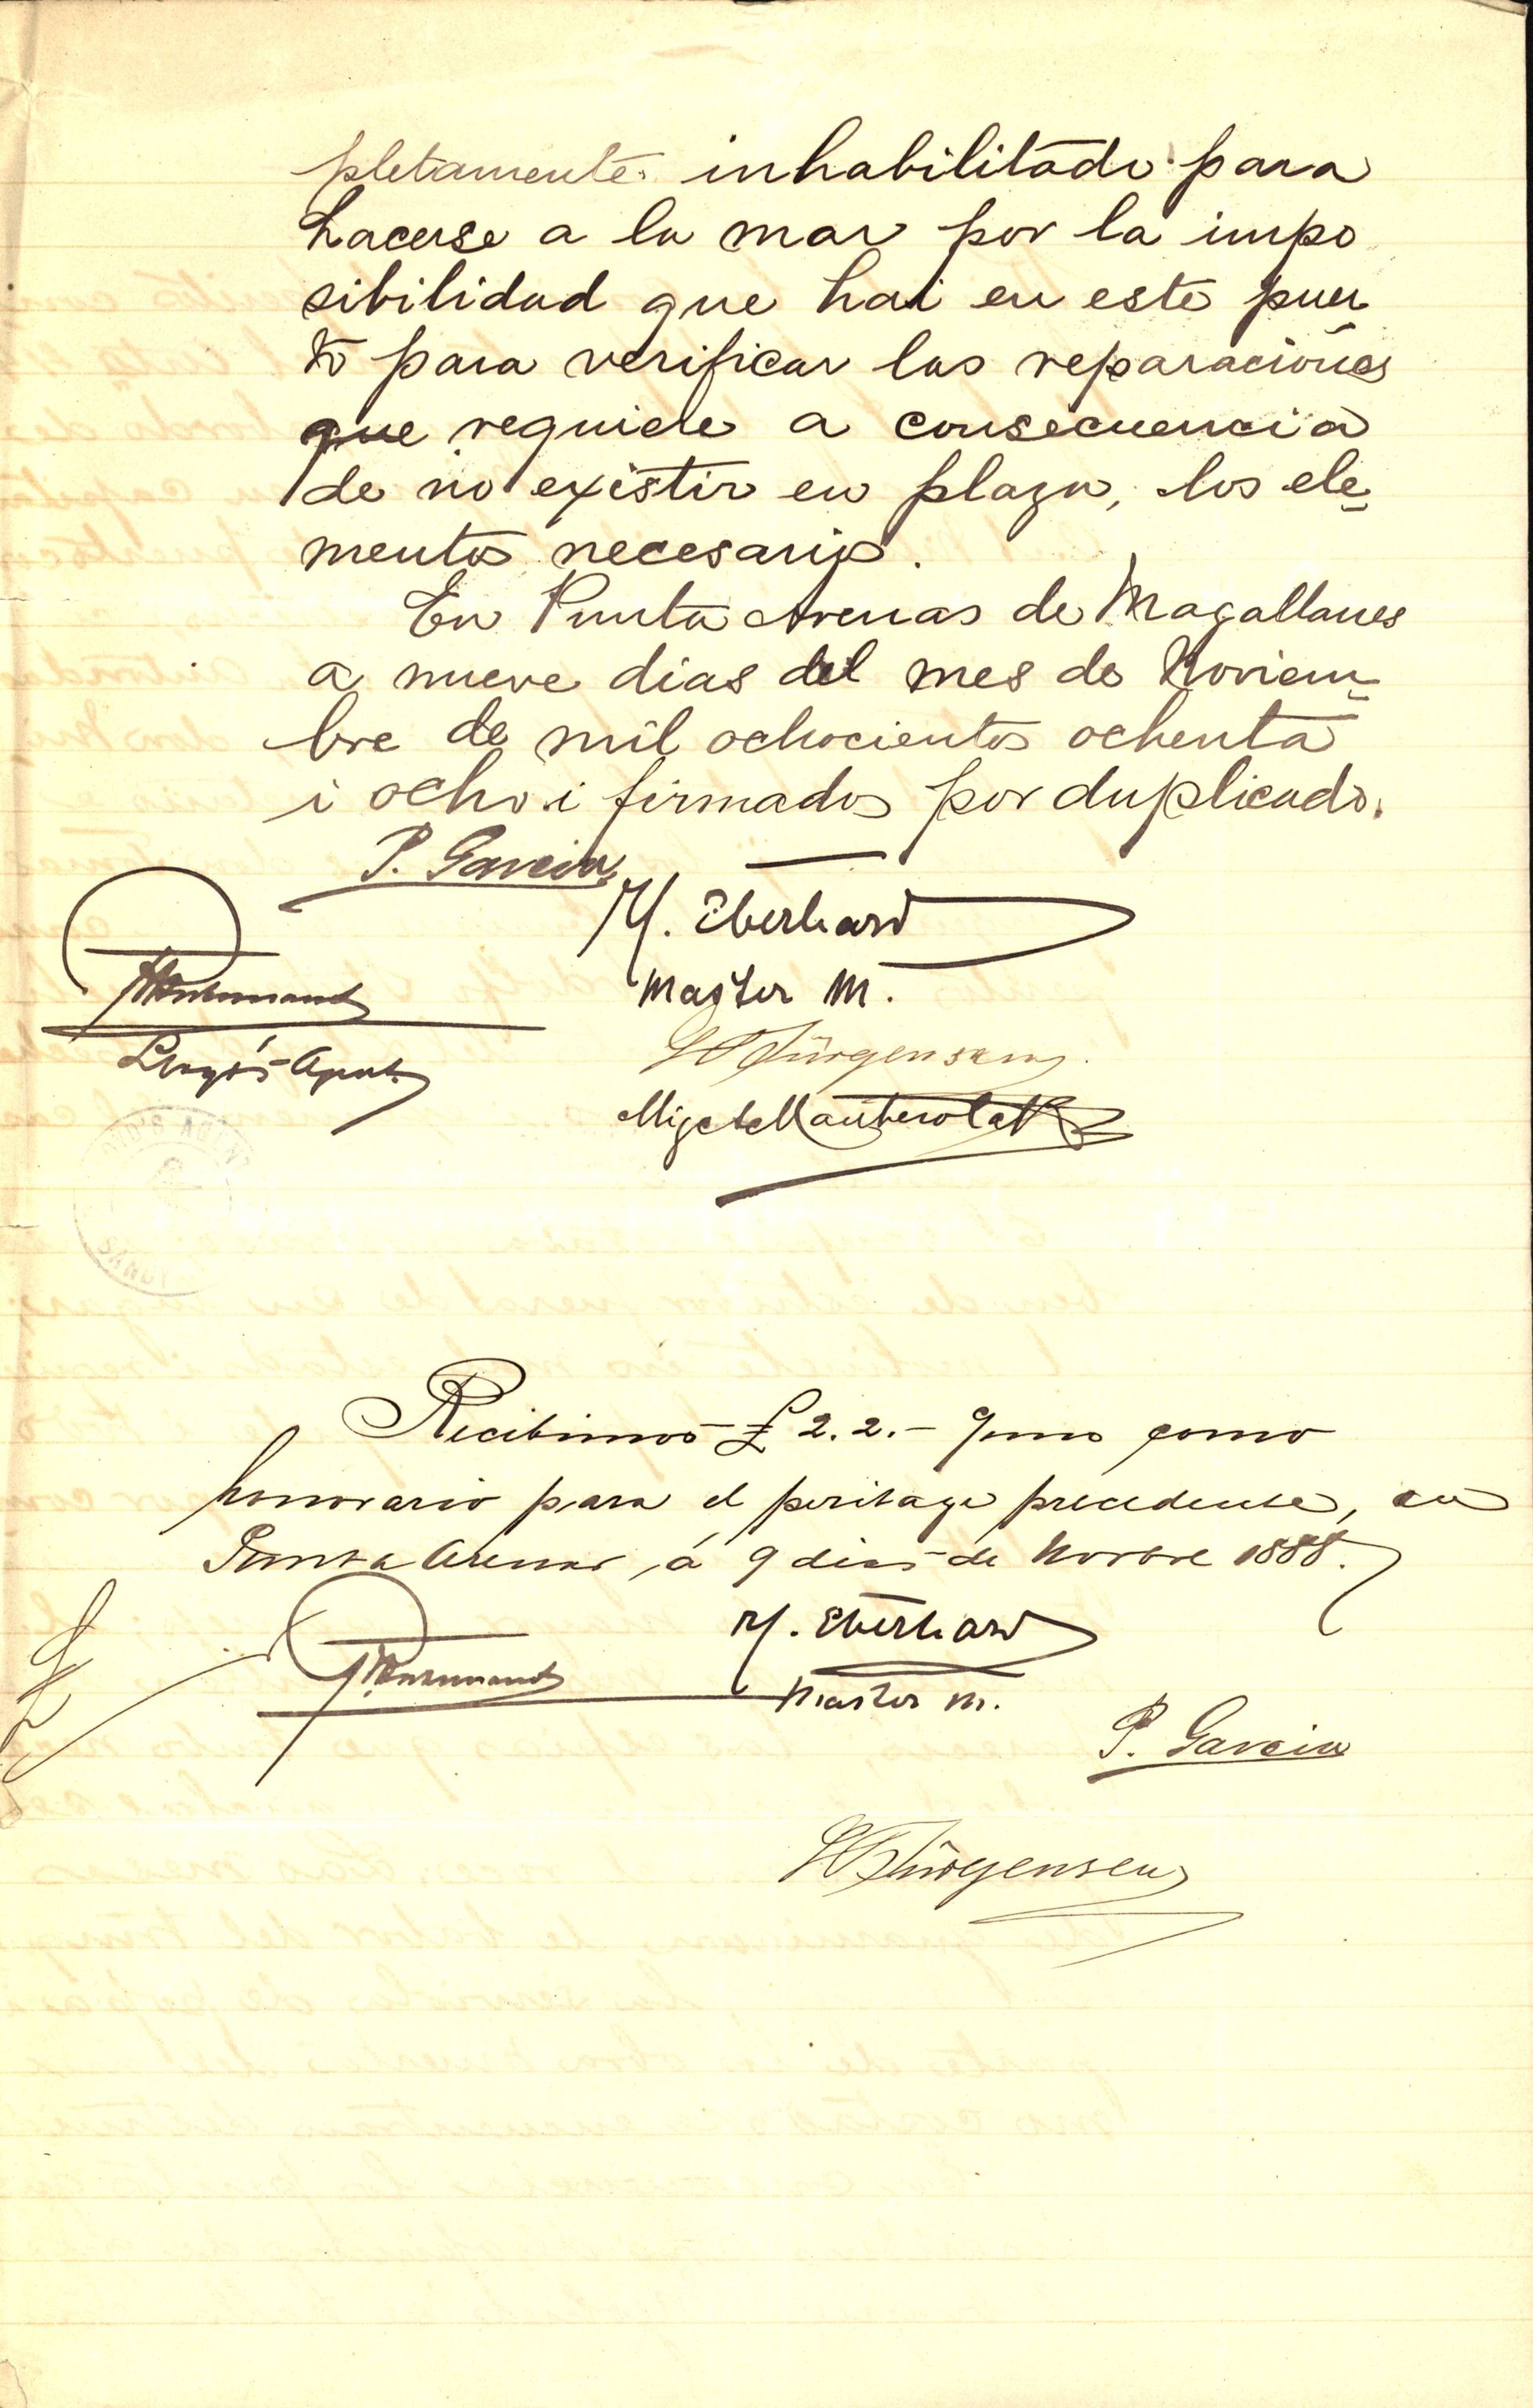 pletamente inhabilitado para
hacerse a la mar por la impo
sibilidad que hai en este puer
to para verificar las reparaciones
que requiere a consecuencia
de no existir en plaza, los ele-
mentos necesarios.
En Punta Arenas de Magallanes
a nueve dias del mes de Noviem-
bre de mil ochocientos ochenta
i ocho i firmados por duplicado.
P. Garcia
H. Eberhard
Master M.
Lloyd's Agent
H Jürgensen
Recibimos £ 2.2.- como
honorario para el peritage precedente, en
Punta Arenas á 9 dias de Novbre 1888.
H. Eberhard
Master M.
P. Garcia
H Jürgensen